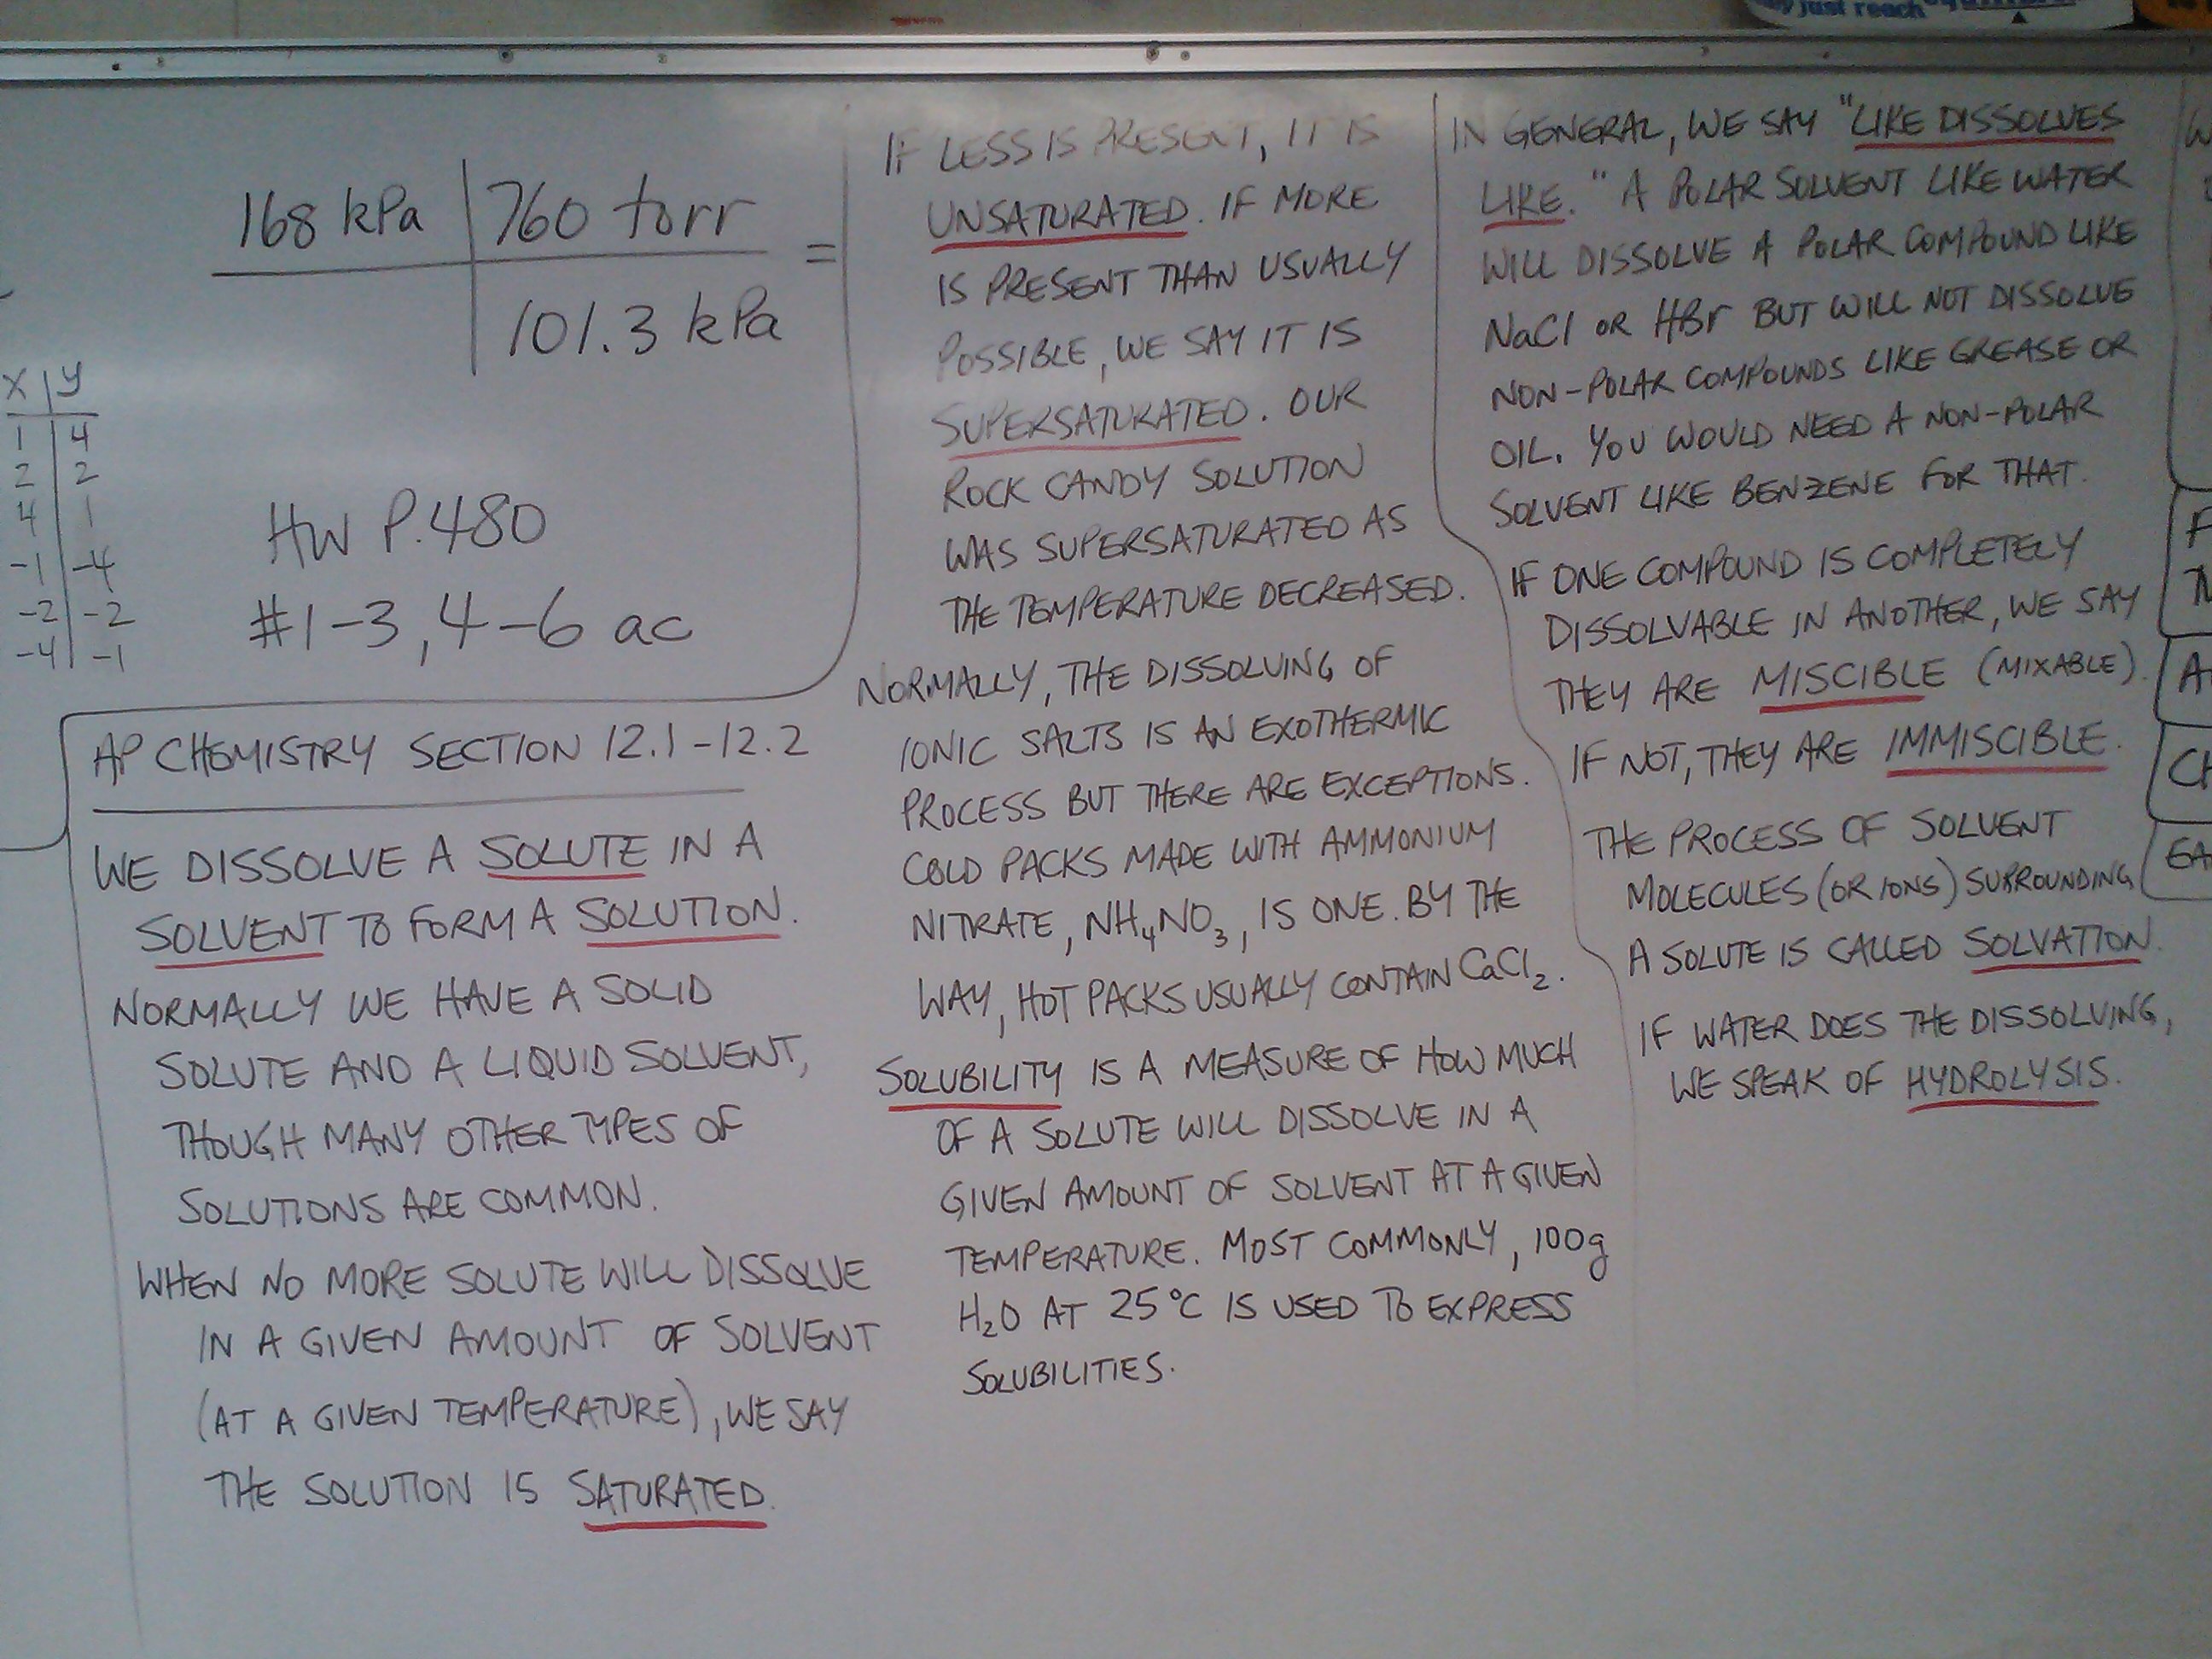 just reach
168 kPa | 760 torr =
101.3 kPa
x | y
1 | 4
2 | 2
4 | 1
-1 | -4
-2 | -2
-4 | -1
HW P.480
#1-3, 4-6 ac
AP CHEMISTRY SECTION 12.1-12.2
WE DISSOLVE A SOLUTE IN A
SOLVENT TO FORM A SOLUTION.
NORMALLY WE HAVE A SOLID
SOLUTE AND A LIQUID SOLVENT,
THOUGH MANY OTHER TYPES OF
SOLUTIONS ARE COMMON.
WHEN NO MORE SOLUTE WILL DISSOLVE
IN A GIVEN AMOUNT OF SOLVENT
(AT A GIVEN TEMPERATURE), WE SAY
THE SOLUTION IS SATURATED.
IF LESS IS PRESENT, IT IS
UNSATURATED. IF MORE
IS PRESENT THAN USUALLY
POSSIBLE, WE SAY IT IS
SUPERSATURATED. OUR
ROCK CANDY SOLUTION
WAS SUPERSATURATED AS
THE TEMPERATURE DECREASED.
NORMALLY, THE DISSOLVING OF
IONIC SALTS IS AN EXOTHERMIC
PROCESS BUT THERE ARE EXCEPTIONS.
COLD PACKS MADE WITH AMMONIUM
NITRATE, NH₄NO₃, IS ONE. BY THE
WAY, HOT PACKS USUALLY CONTAIN CaCl₂.
SOLUBILITY IS A MEASURE OF HOW MUCH
OF A SOLUTE WILL DISSOLVE IN A
GIVEN AMOUNT OF SOLVENT AT A GIVEN
TEMPERATURE. MOST COMMONLY, 100g
H₂O AT 25°C IS USED TO EXPRESS
SOLUBILITIES.
IN GENERAL, WE SAY "LIKE DISSOLVES
LIKE." A POLAR SOLVENT LIKE WATER
WILL DISSOLVE A POLAR COMPOUND LIKE
NaCl OR HBr BUT WILL NOT DISSOLVE
NON-POLAR COMPOUNDS LIKE GREASE OR
OIL. YOU WOULD NEED A NON-POLAR
SOLVENT LIKE BENZENE FOR THAT.
IF ONE COMPOUND IS COMPLETELY
DISSOLVABLE IN ANOTHER, WE SAY
THEY ARE MISCIBLE (MIXABLE).
IF NOT, THEY ARE IMMISCIBLE.
THE PROCESS OF SOLVENT
MOLECULES (OR IONS) SURROUNDING
A SOLUTE IS CALLED SOLVATION.
IF WATER DOES THE DISSOLVING,
WE SPEAK OF HYDROLYSIS.